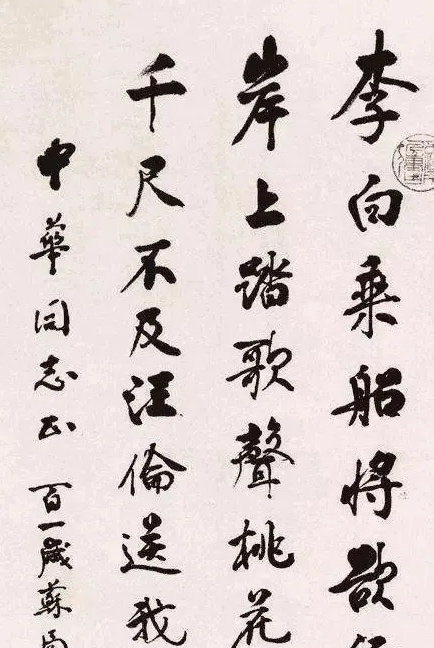 李白乘船將欲
岸上踏歌聲桃花
千尺不及汪倫送我
中華同志正 百一歲蘇局